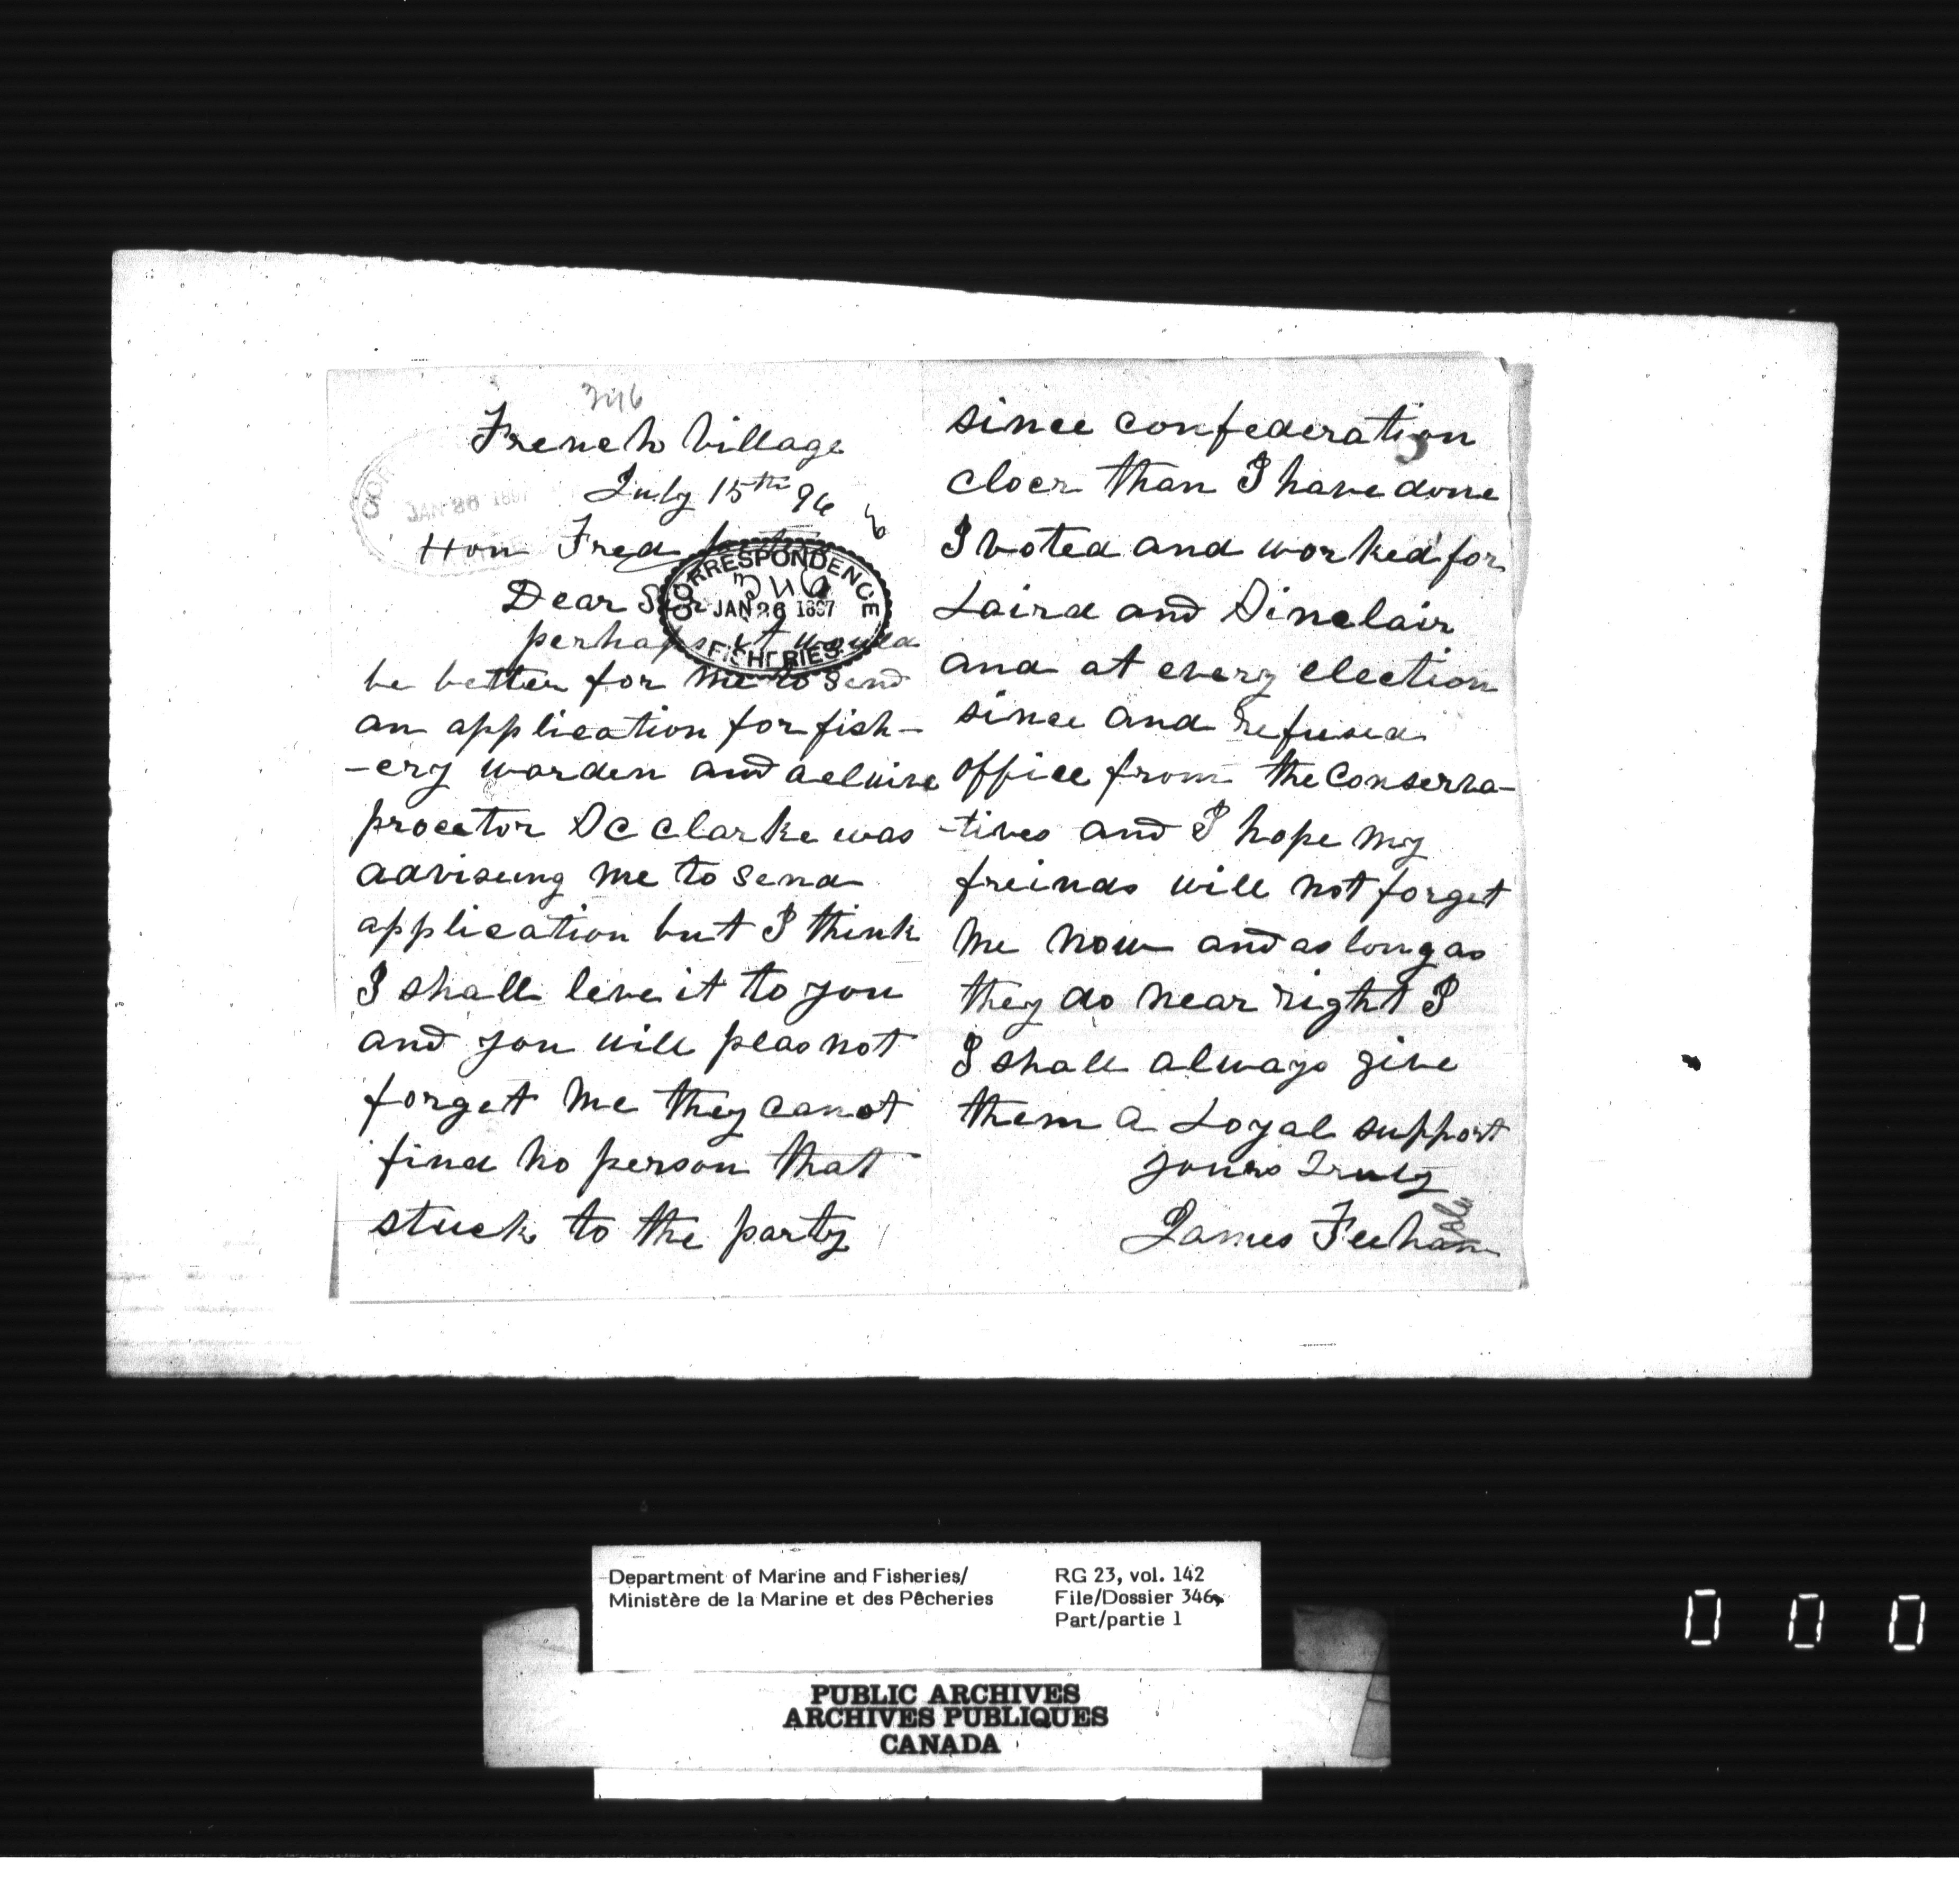 346
French Village
July 15th 96
Hon Fred
Dear Sir
CORRESPONDENCE
346
JAN 26 1897
FISHERIES
JAN 26 1897
perhaps it would
be better for me to send
an application for fish-
-ery warden and
procetor D C Clarke was
adviseing me to send
application but I think
I shall leve it to you
and you will pleas not
forget me they canot
find no person that
stuck to the party
since confederation
closer than I have done
I voted and worked for
Laird and Sinclair
and at every election
since and refused
office from the Conserva-
-tives and I hope my
freinds will not forget
me now and as long as
they do near right I
I shall always give
them a Loyal support
yours Truly
James Feehan
Department of Marine and Fisheries/
Ministère de la Marine et des Pêcheries
RG 23, vol. 142
File/Dossier 346
Part/partie 1
PUBLIC ARCHIVES
ARCHIVES PUBLIQUES
CANADA
0 0 0